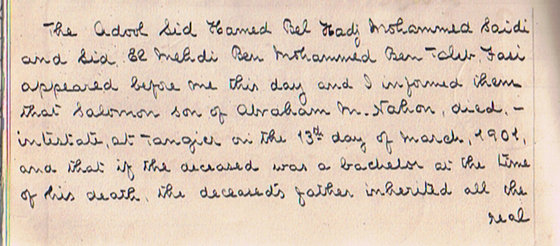 The Adool Sid Hamed Bel Hadj Mohammed Saidi
and Sid El Mehdi Ben Mohammed Ben Taleb Fasi
appeared before me this day and I informed them
that Salomon son of Abraham M. Nahon, died, -
intestate, at Tangier on the 13th day of March, 1901,
and that if the deceased was a bachelor at the time
of his death, the deceased's father inherited all the
real